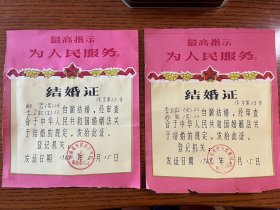 最高指示
为人民服务。
结婚证
字第23号
自願結婚，经审查
合于中华人民共和国婚姻法关
于结婚的规定，发给此证。
登记机关
发证日期 19 年 月15日
最高指示
为人民服务。
结婚证
字第23号
自願結婚，经审查
合于中华人民共和国婚姻法关
于结婚的规定，发给此证。
登记机关
发证日期 19 年 月15日